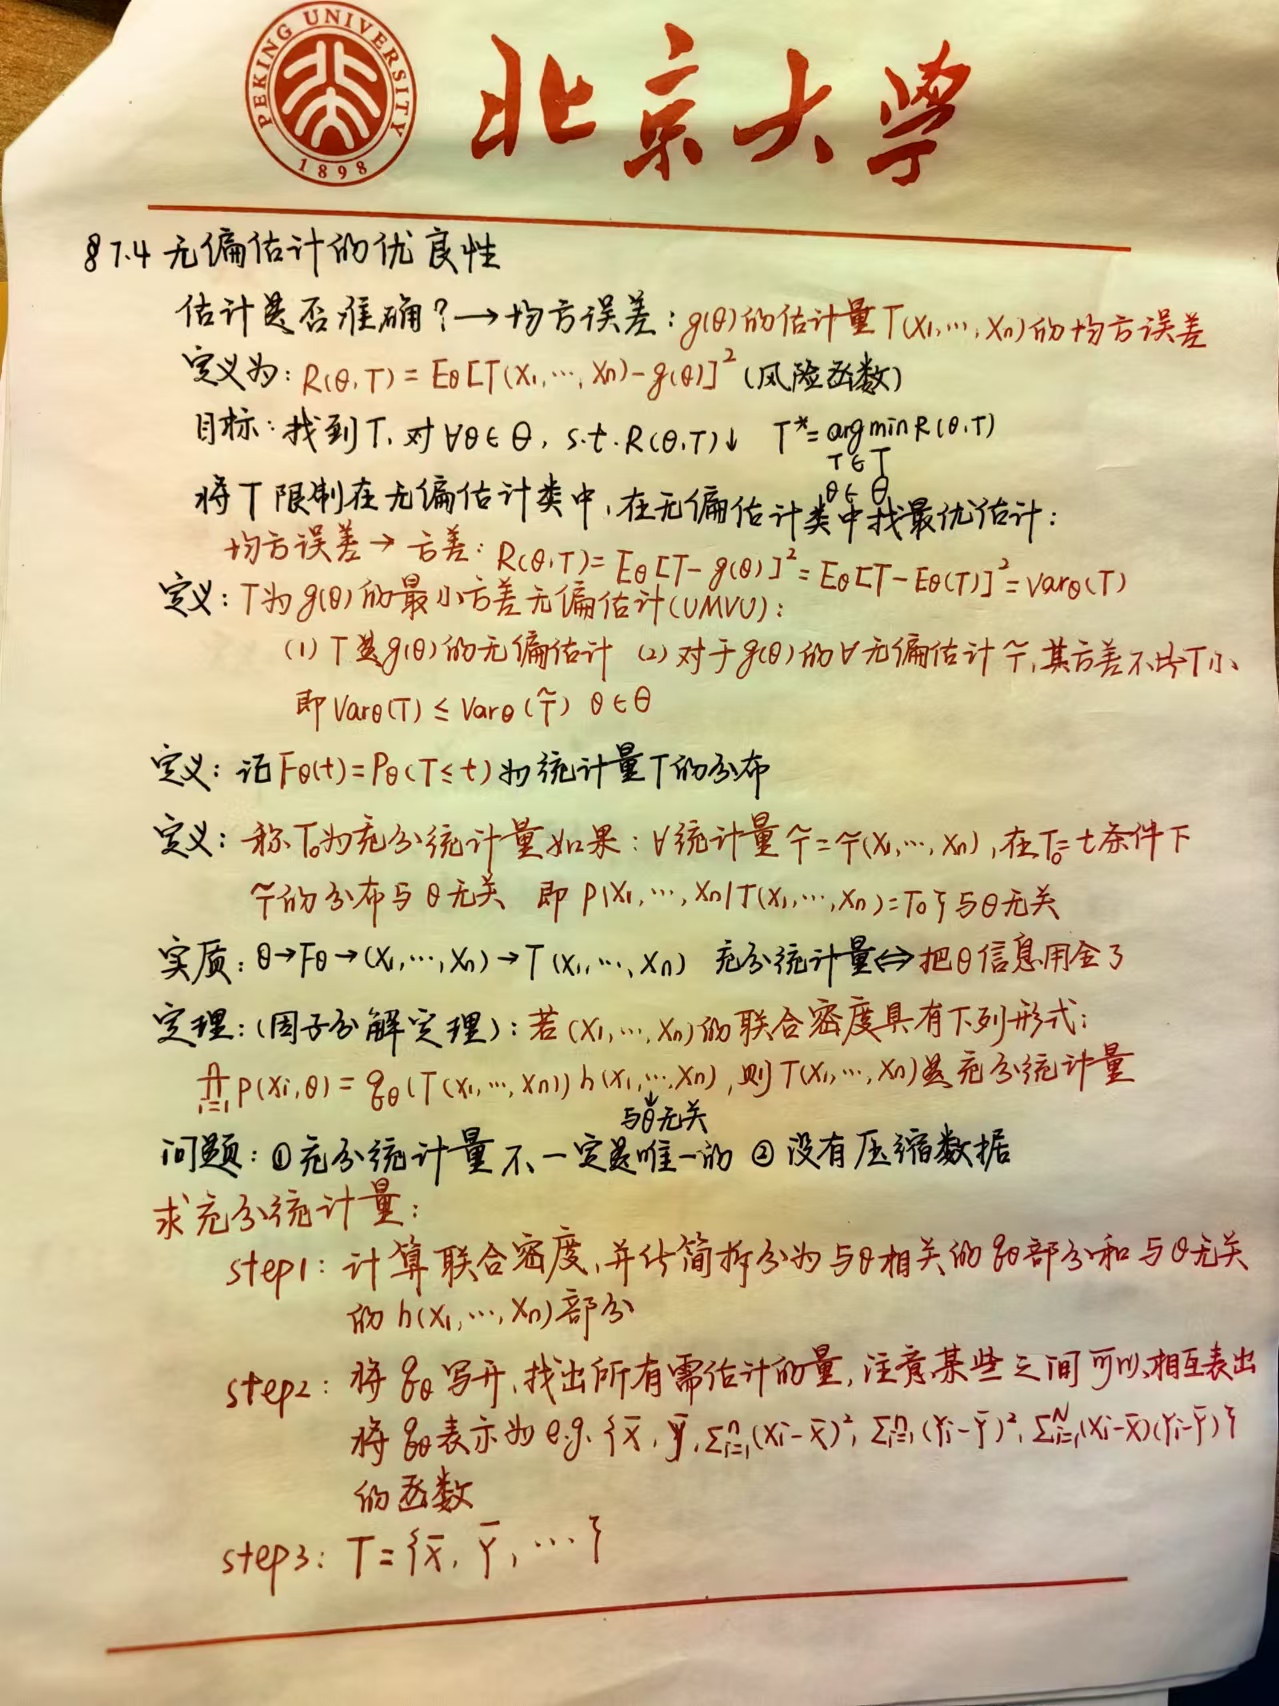 PEKING UNIVERSITY
1898
北京大学
§7.4 无偏估计的优良性
估计是否准确?→均方误差: g(θ)的估计量T(X₁,…,Xn)的均方误差
定义为: R(θ,T) = Eθ[T(X₁,…,Xn)-g(θ)]² (风险函数)
目标: 找到T, 对∀θ∈Θ, s.t. R(θ,T)↓ T*= argmin R(θ,T)
T∈T
θ∈Θ
将T限制在无偏估计类中,在无偏估计类中找最优估计:
均方误差→方差: R(θ,T)= Eθ[T-g(θ)]²= Eθ[T-Eθ(T)]²= Varθ(T)
定义: T为g(θ)的最小方差无偏估计(UMVU):
(1) T是g(θ)的无偏估计 (2) 对于g(θ)的∀无偏估计T̃,其方差不比T小
即 Varθ(T) ≤ Varθ(T̃) θ∈Θ
定义: 记Fθ(t)=Pθ(T≤t)为统计量T的分布
定义: 称T₀为充分统计量如果: ∀统计量T̃=T̃(X₁,…,Xn),在T₀=t条件下
T̃的分布与θ无关 即 P{X₁,…,Xn|T(X₁,…,Xn)=T₀}与θ无关
实质: θ→Fθ→(X₁,…,Xn)→T(X₁,…,Xn) 充分统计量⇔把θ信息用全了
定理:(因子分解定理): 若(X₁,…,Xn)的联合密度具有下列形式:
∏ⁿᵢ₌₁ P(Xi,θ) = qθ(T(X₁,…,Xn)) h(X₁,…,Xn),则T(X₁,…,Xn)是充分统计量
↓
与θ无关
问题: ①充分统计量不一定是唯一的 ②没有压缩数据
求充分统计量:
step1: 计算联合密度,并化简拆分为与θ相关的qθ部分和与θ无关
的h(X₁,…,Xn)部分
step2: 将qθ写开,找出所有需估计的量,注意某些之间可以相互表出
将qθ表示为e.g. {X̄, Ȳ, Σⁿᵢ₌₁(Xi-X̄)², Σⁿᵢ₌₁(Yi-Ȳ)², Σᴺᵢ₌₁(Xi-X̄)(Yi-Ȳ)}
的函数
step3: T={X̄, Ȳ, …}